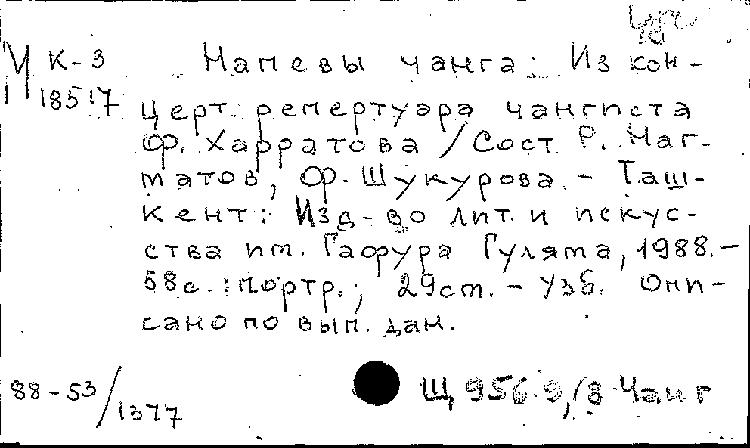 К-3 Напевы чанга: Из кон-
18517
церт. репертуара чангиста
Ф. Харратова / Сост. Р. Наг-
матов, Ф. Шукурова. - Таш-
кент: Изд-во лит. и искус-
ства им. Гафура Гуляма, 1988. -
58 с.: портр.; 29 см. - Узб. Опи-
сано по вып. дан.
88-53/1377
Щ 956.3,/3 Чанг